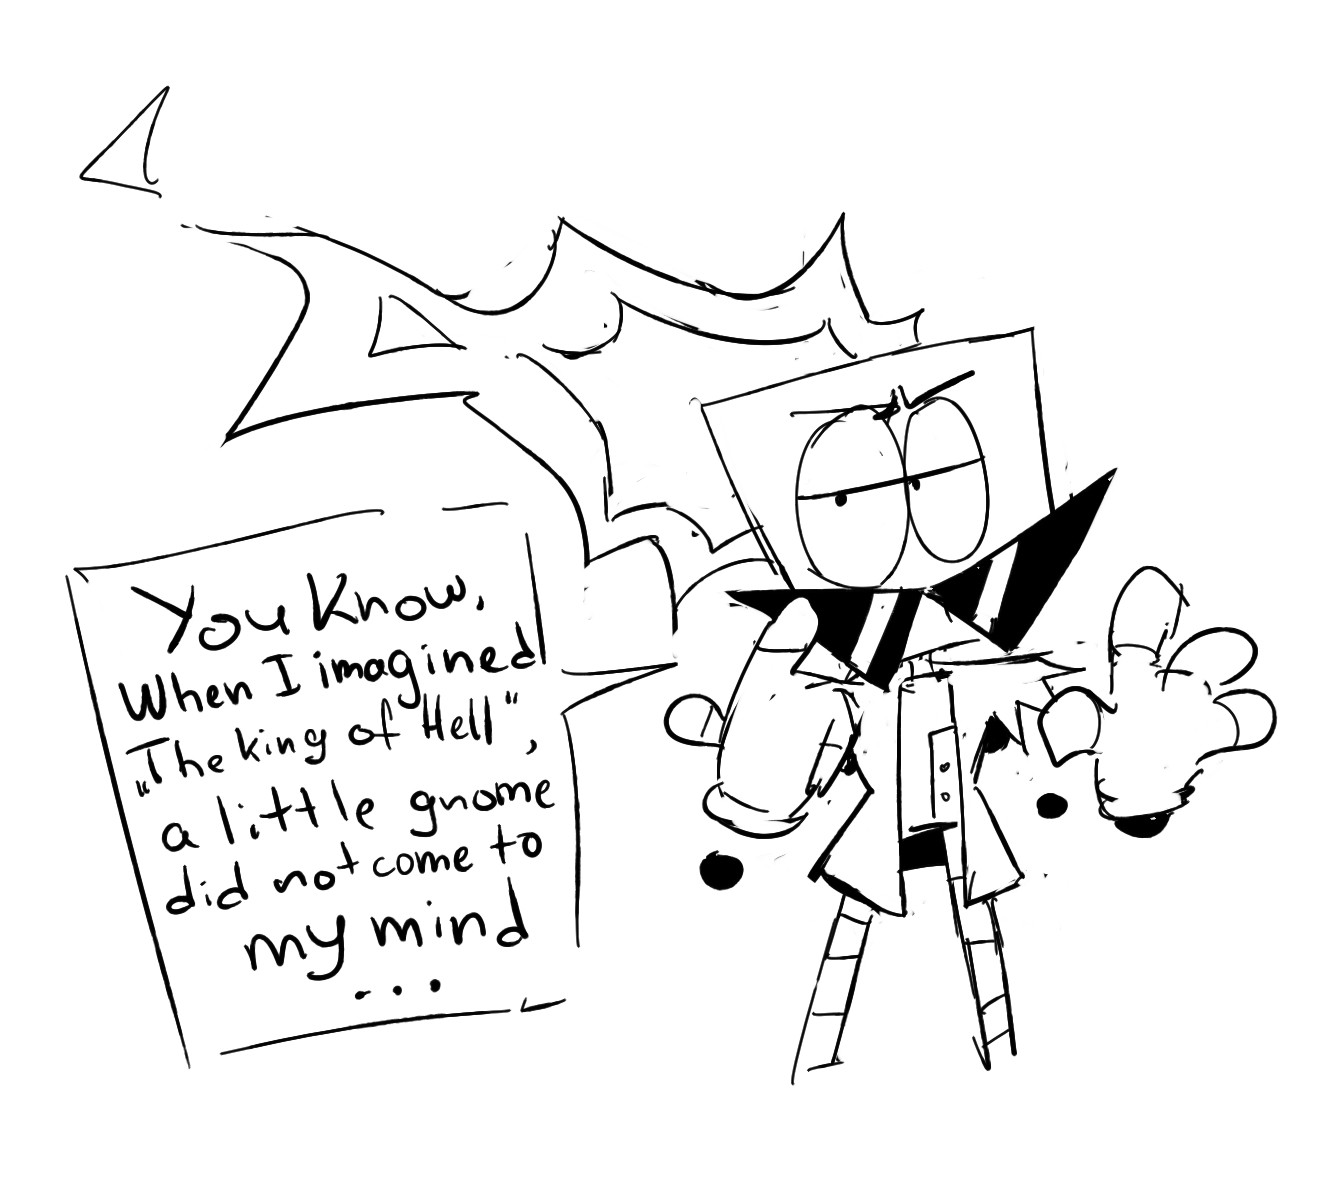 You Know,
When I imagined
„The king of Hell",
a little gnome
did not come to
my mind
...